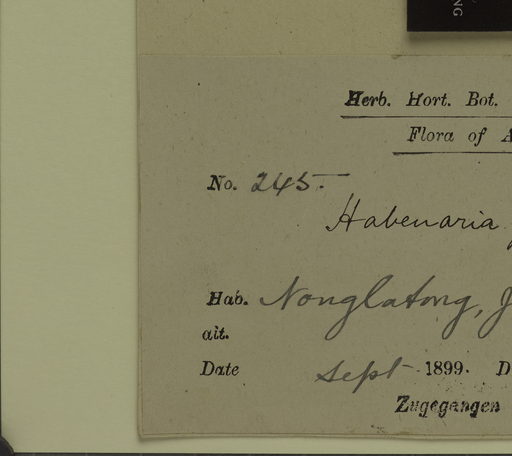 NG
Herb. Hort. Bot.
Flora of A
No. 245.
Habenaria
Hab. Nonglatong, J
alt.
Date Sept 1899. D
Zugegangen